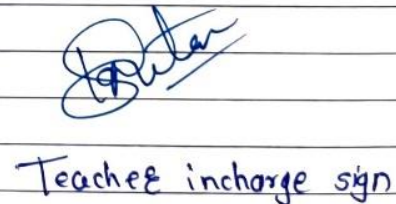 Teacher incharge sign